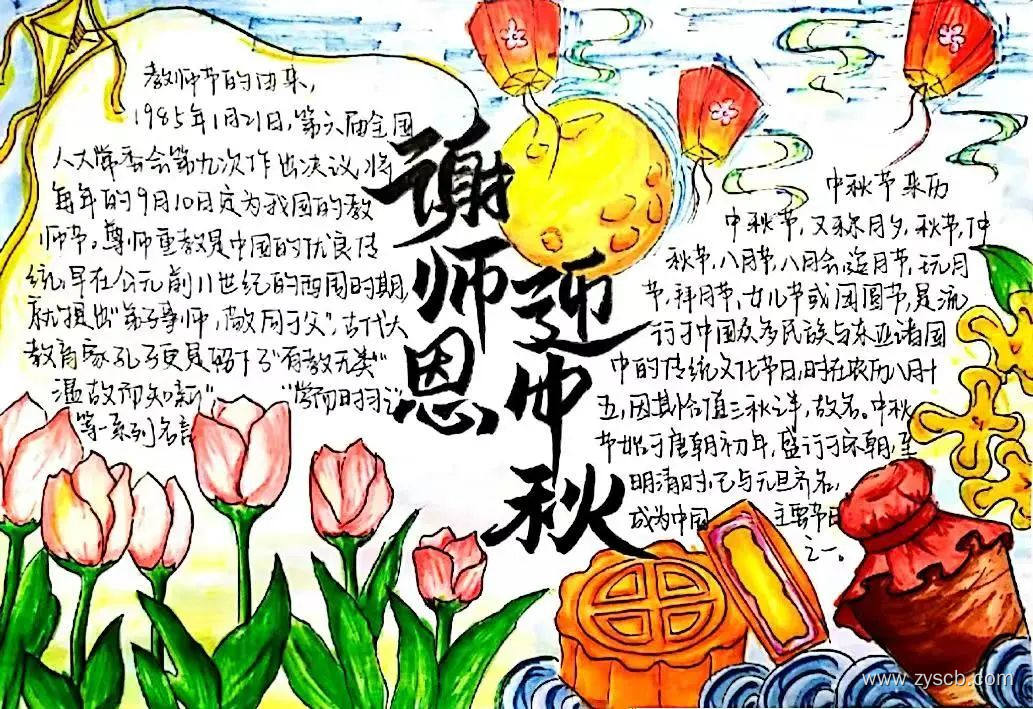 教师节的由来,
1985年1月21日,第六届全国
人大常委会第九次作出决议,将
每年的9月10日定为我国的教
师节。尊师重教是中国的优良传
统,早在公元前11世纪的西周时期,
就提出"弟子事师,敬同于父",古代大
教育家孔子更是留下了"有教无类"
温故而知新","学而时习之"
等一系列名言
谢师恩
迎中秋
中秋节来历
中秋节,又称月夕,秋节,仲
秋节,八月节,八月会,追月节,玩月
节,拜月节,女儿节或团圆节,是流
行于中国众多民族与东亚诸国
中的传统文化节日,时在农历八月十
五,因其恰值三秋之半,故名。中秋
节始于唐朝初年,盛行于宋朝,至
明清时,已与元旦齐名,
成为中国 主要节日
之一。
www.zyscb.com